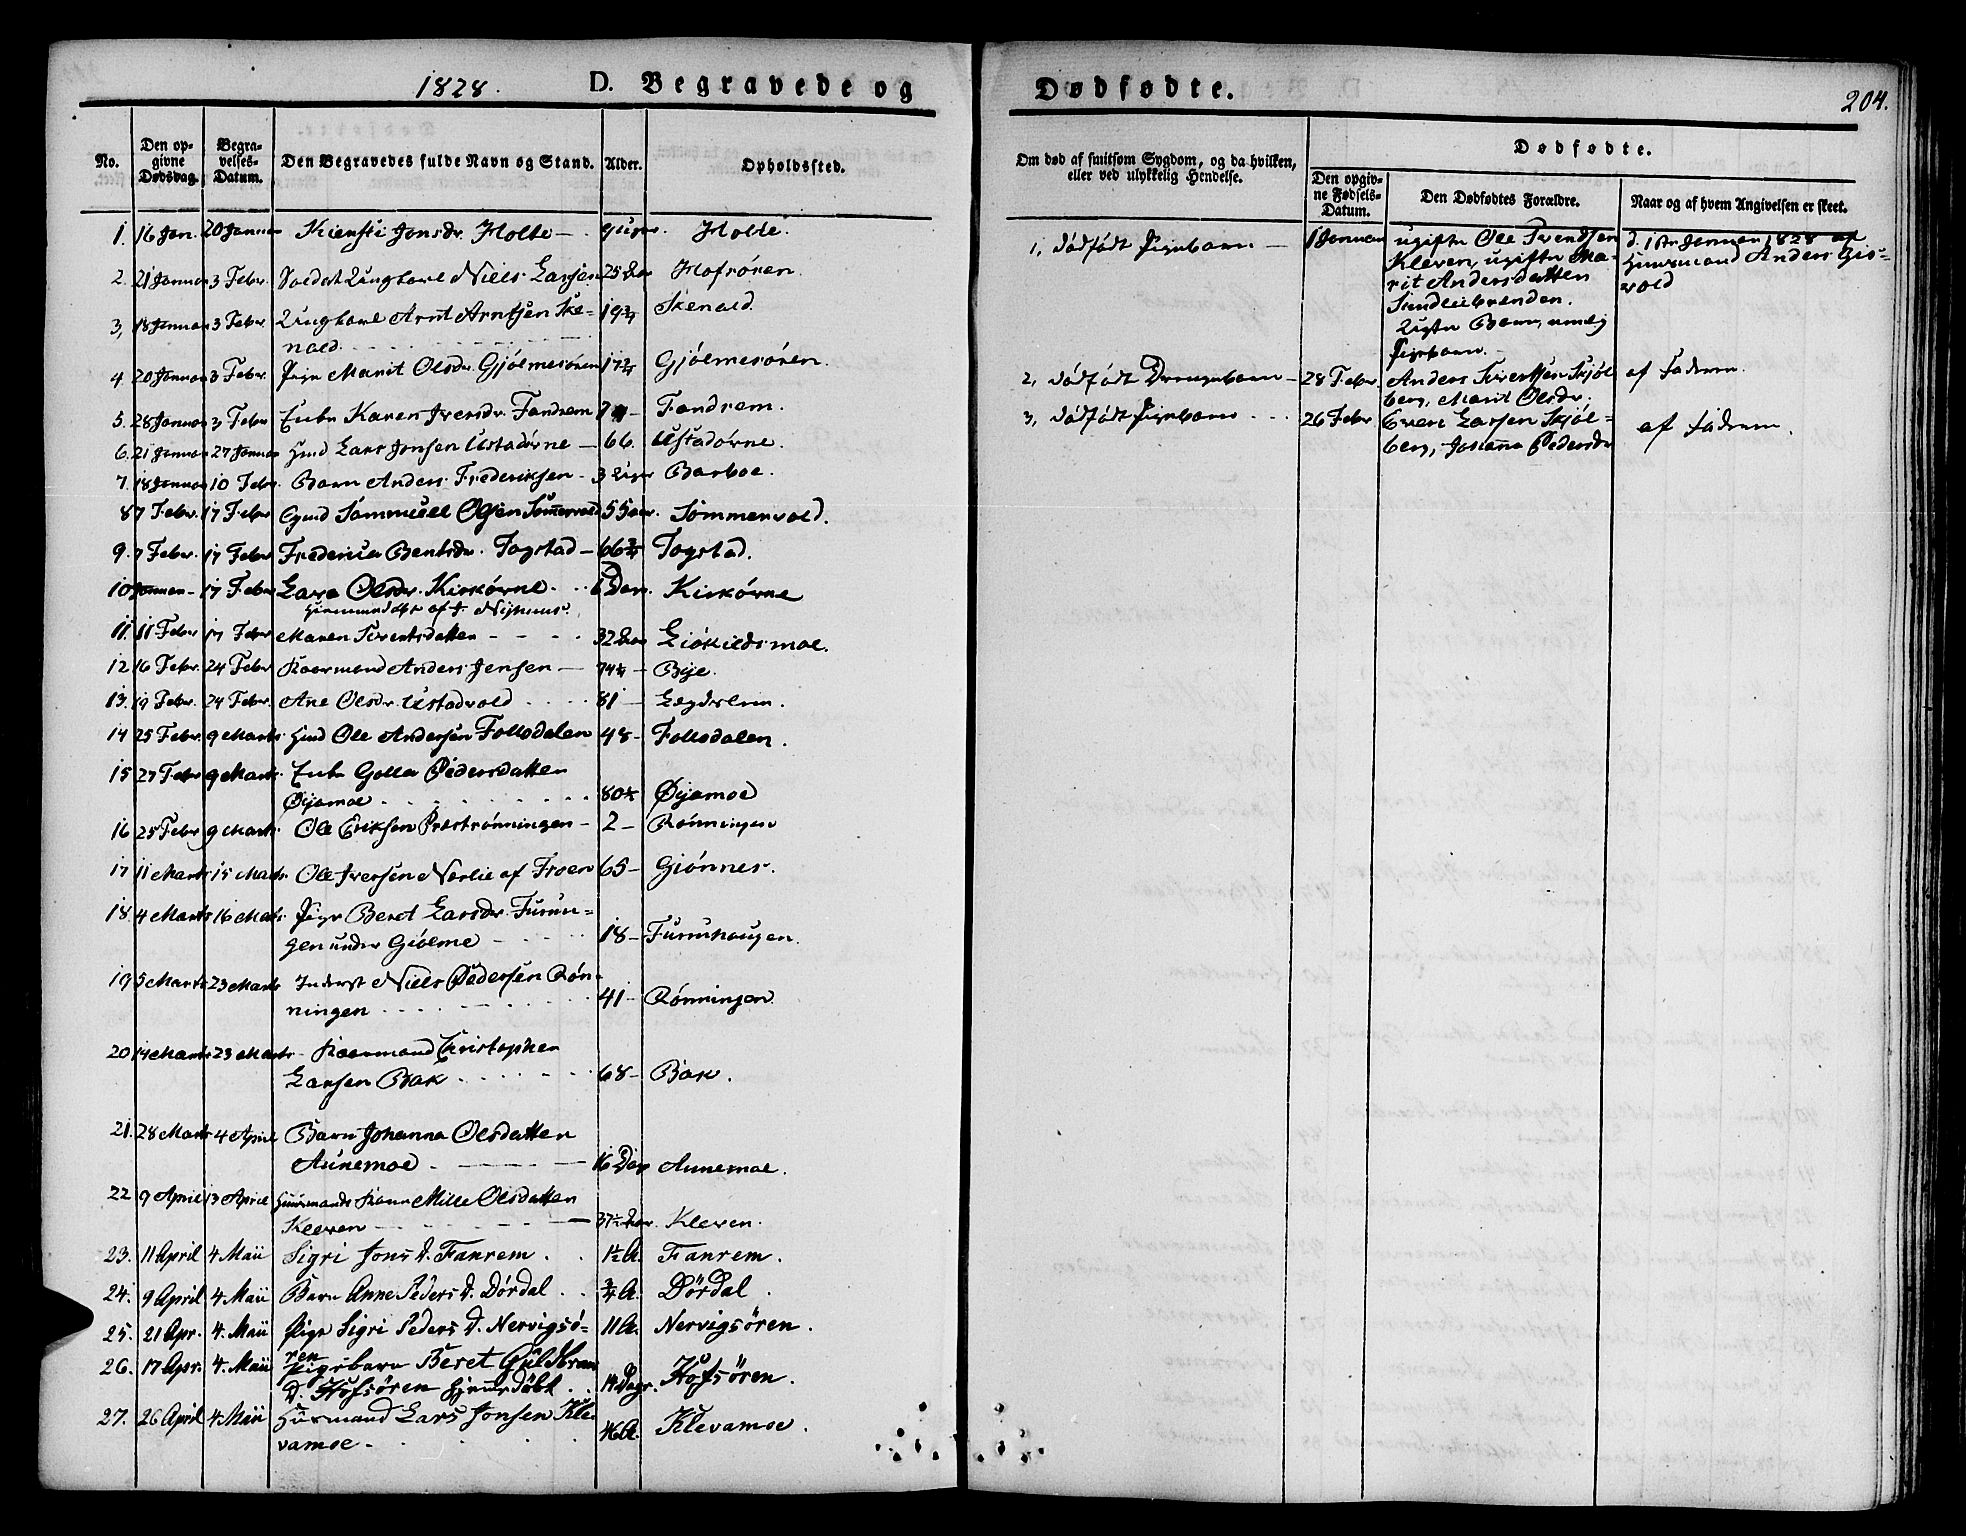 1828. D. Begravede og Dødfødte. 204.
No. Den opgivne Dødsdag. Begravelses-Datum. Den Begravedes fulde Navn og Stand. Alder. Opholdssted.
1. 16 Jan. 20 Januar Kiersti Jonsdr. Holte — 9 Uger Holte.
2. 21 Januar 3 Febr. Soldat Ungkarl Niels Larsen 25 Aar Hofsören.
3, 18 Januar 3 Febr. Ungkarl Arnt Arntsen Ske- 19 3/4 Skenald.
nald.
4. 20 Januar 3 Febr. Pige Marit Olsdr. Gjölmesören 17 3/4 Gjölmesören.
5. 28 Januar 3 Febr. Enke Karen Iversdr. Fandrem Fandrem.
6. 21 Januar 27 Januar Hmd Lars Jonsen Ustadörne — 66. Ustadörne.
7. 18 Januar 10 Febr. Barn Anders Frederiksen - 3 Uger Barboe.
8 7 Febr. 17 Febr Gmd Sammuel Olsen Sömmervold 55 Aar. Sömmervold.
9. 7 Febr. 17 Febr Frederica Bentsdr. Togstad — 66 3/4 Togstad.
10 Januar - 17 Febr Lara Olsdr. Kirkörne. 6 Dage. Kirkörne
hjemmedøbt af J. Nyhuus.
11. 11 Febr 17 Febr Maren Sivertsdatter - - - - 32 Aar Liökildsmoe.
12 16 Febr. 24 Febr Kaarmand Anders Jensen — 74 1/2 — Bye.
13. 19 Febr. 24 Febr. Ane Olsdr. Ustadvold . . . . 81 — Legdelem.
14 25 Febr. 9 Marts Hmd Ole Andersen Follsdalen 48 - Follsdalen.
15 27 Febr 9 Marts. Enke Golla Pedersdatter
Öyamoe . . . . . . . . . 80 1/2 Öyamoe
16 25 Febr 9 Marts Ole Eriksen Præströnningen - 2 — Rönningen
17 11 Marts 15 Marts. Ole Iversen Nerlie af Froen 65 - Giönnes.
18. 4 Marts 16 Marts Pige Beret Larsdr. Furun-
gen under Giölme — - - - - 18 — Furruhaugen.
19 5 Marts 23 Marts Inderst Niels Pedersen Rön-
ningen . . . . 41 — Rönningen.
20 14 Marts 23 Marts - Kaarmand Christopher
Larsen Bak . . . . . . . 68 - Bak.
21. 28 Marts 4 April Barn Johanna Olsdatter
Aunemoe . — — — — 16 Dage Aunemoe.
22 9 April 13 April Huusmands Kone Mille Olsdatter
Kleven — — — — — 37 1/2 Aar. Kleven.
23. 11 April 4 Maii Sigri Jons D. Fanrem. . 1 1/2 A. Fanrem.
24. 9 April 4 Maii Barn Anne Peders D. Dördal . . 3/4 A. Dördal.
25. 21 Apr. 4. Maii Pige Sigri Peders D. Nervigsö- 11 A. Nervigsören.
ren
26. 17 Apr. 4. Maii Pigebarn Beret Guldbran
D. Hofsören hjemdöbt . . 14 Dage. Hofsören.
27. 26 April 4. Maii Huusmand Lars Jonsen Kle-
vamoe . . . . 46 A. Klevamoe.
Om død af smitsom Sygdom, og da hvilken, eller ved ulykkelig Hendelse.
Dødfødte.
Den opgivne Fødsels-Datum. Den Dødfødtes Forældre. Naar og af hvem Angivelsen er skeet.
1, dödfödt Pigebarn — 1 Januar ugifte Ole Svendsen d. 1ste Januar 1828 af
Kleven, ugifte Ma- Huusmand Anders Gis-
rit Andersdatter vold
Sundlibrenden.
Uægte Barn, nemlig
Pigebarn.
2, dödfödt Drengebarn — 28 Febr. Anders Sivertsen Skjöl af Faderen.
berg, Marit Olsdr.
3, dödfödt Pigebarn . . . 26 Febr Even Larsen Skjöl- af Faderen.
berg, Johanna Pedersdr